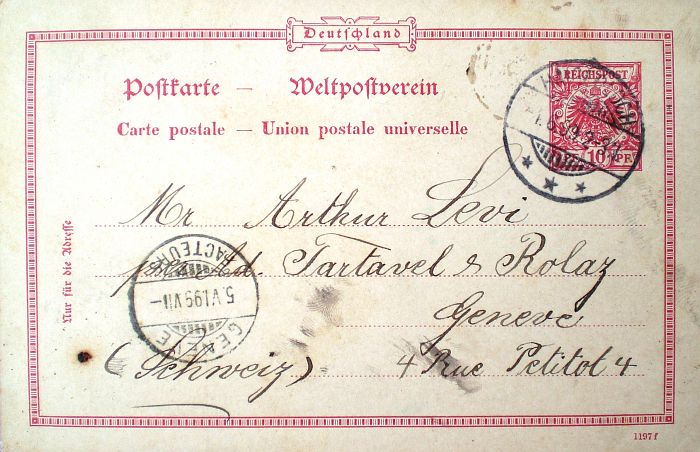 Deutschland
REICHSPOST
10 PF
Postkarte — Weltpostverein
Carte postale — Union postale universelle
Nur für die Adresse
Mr Arthur Levi
Ad. Tartavel & Rolaz
Geneve
(Schweiz) 4 Rue Petitot 4
FACTEUR
5.VI.99.VII-
GENEVE
1197f